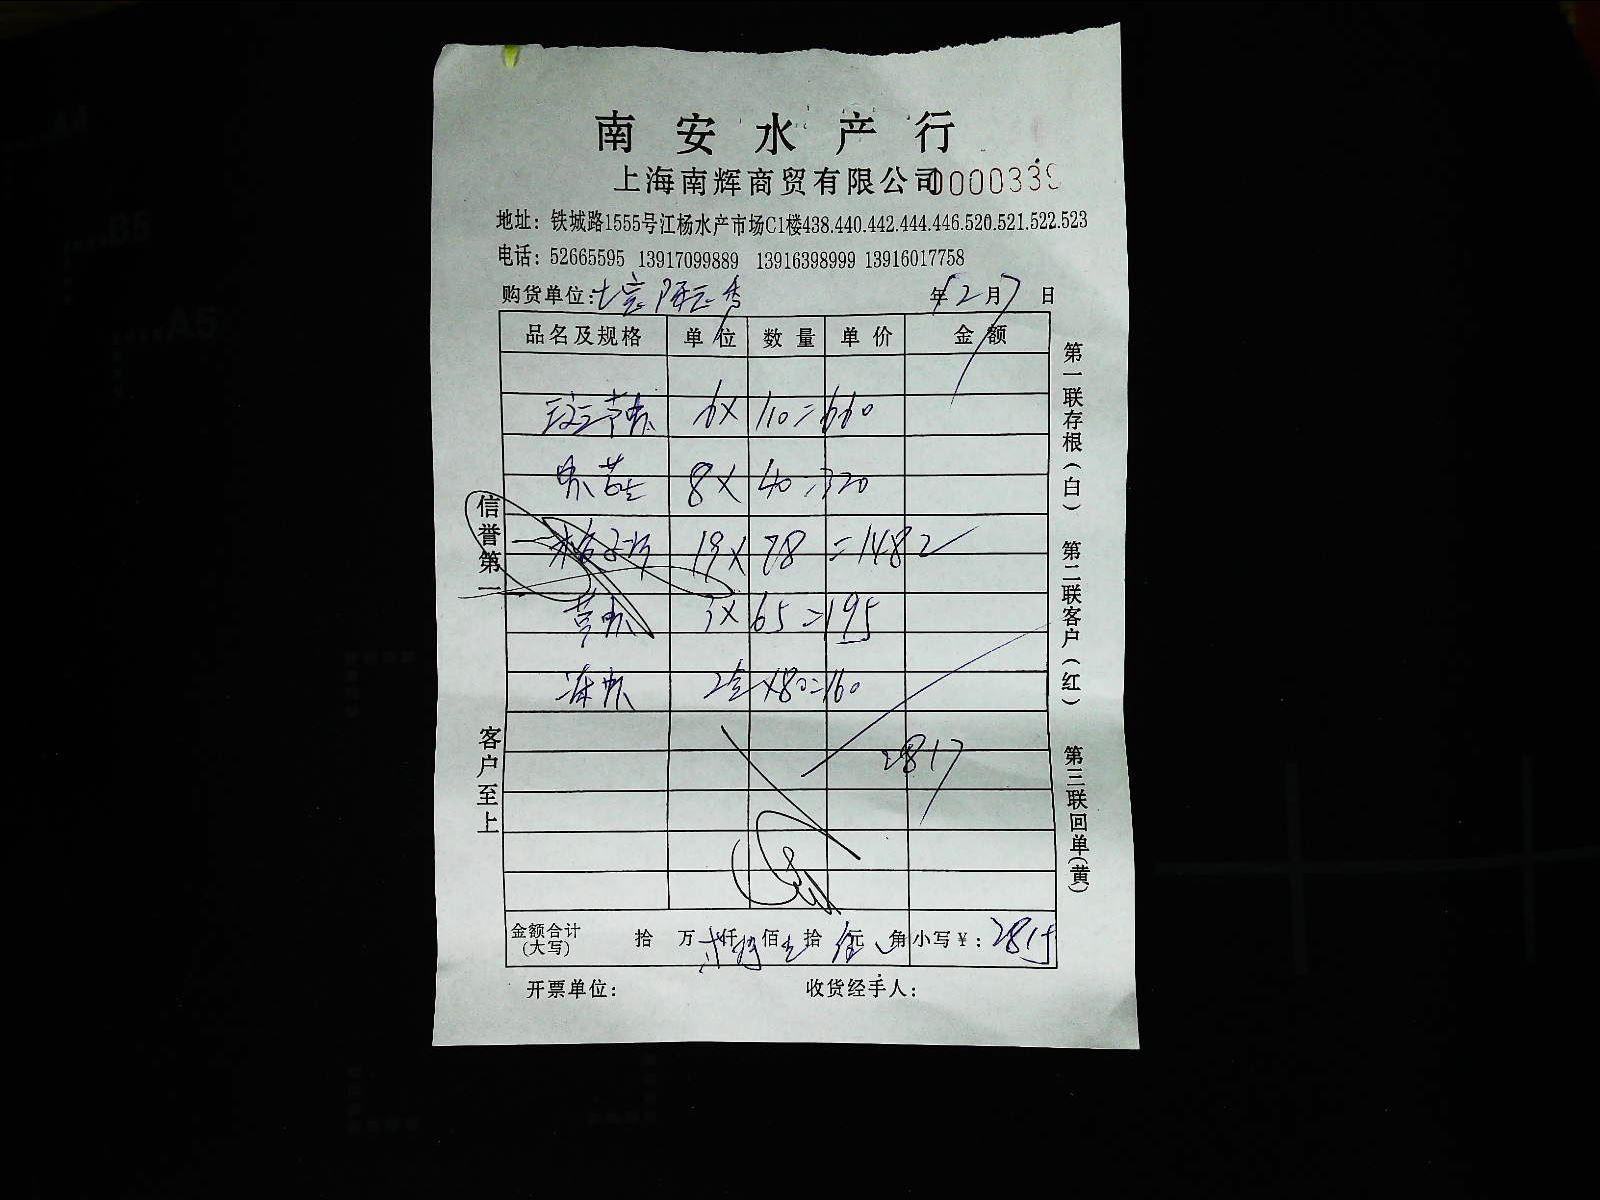 南安水产行
上海南辉商贸有限公司 000033
地址：铁城路1555号江杨水产市场C1楼438.440.442.444.446.520.521.522.523
电话：52665595 13917099889 13916398999 13916017758
购货单位： 年12月7日
品名及规格 单位 数量 单价 金额
斑节虾 6× 110=660
8× 40=320
19× 78=1482
3× 65=195
冻虾 2盒×80=160
2817
金额合计(大写) 拾 万 仟 佰 拾 元 角 小写￥: 281
开票单位： 收货经手人：
信誉第一
客户至上
第一联存根(白)
第二联客户(红)
第三联回单(黄)